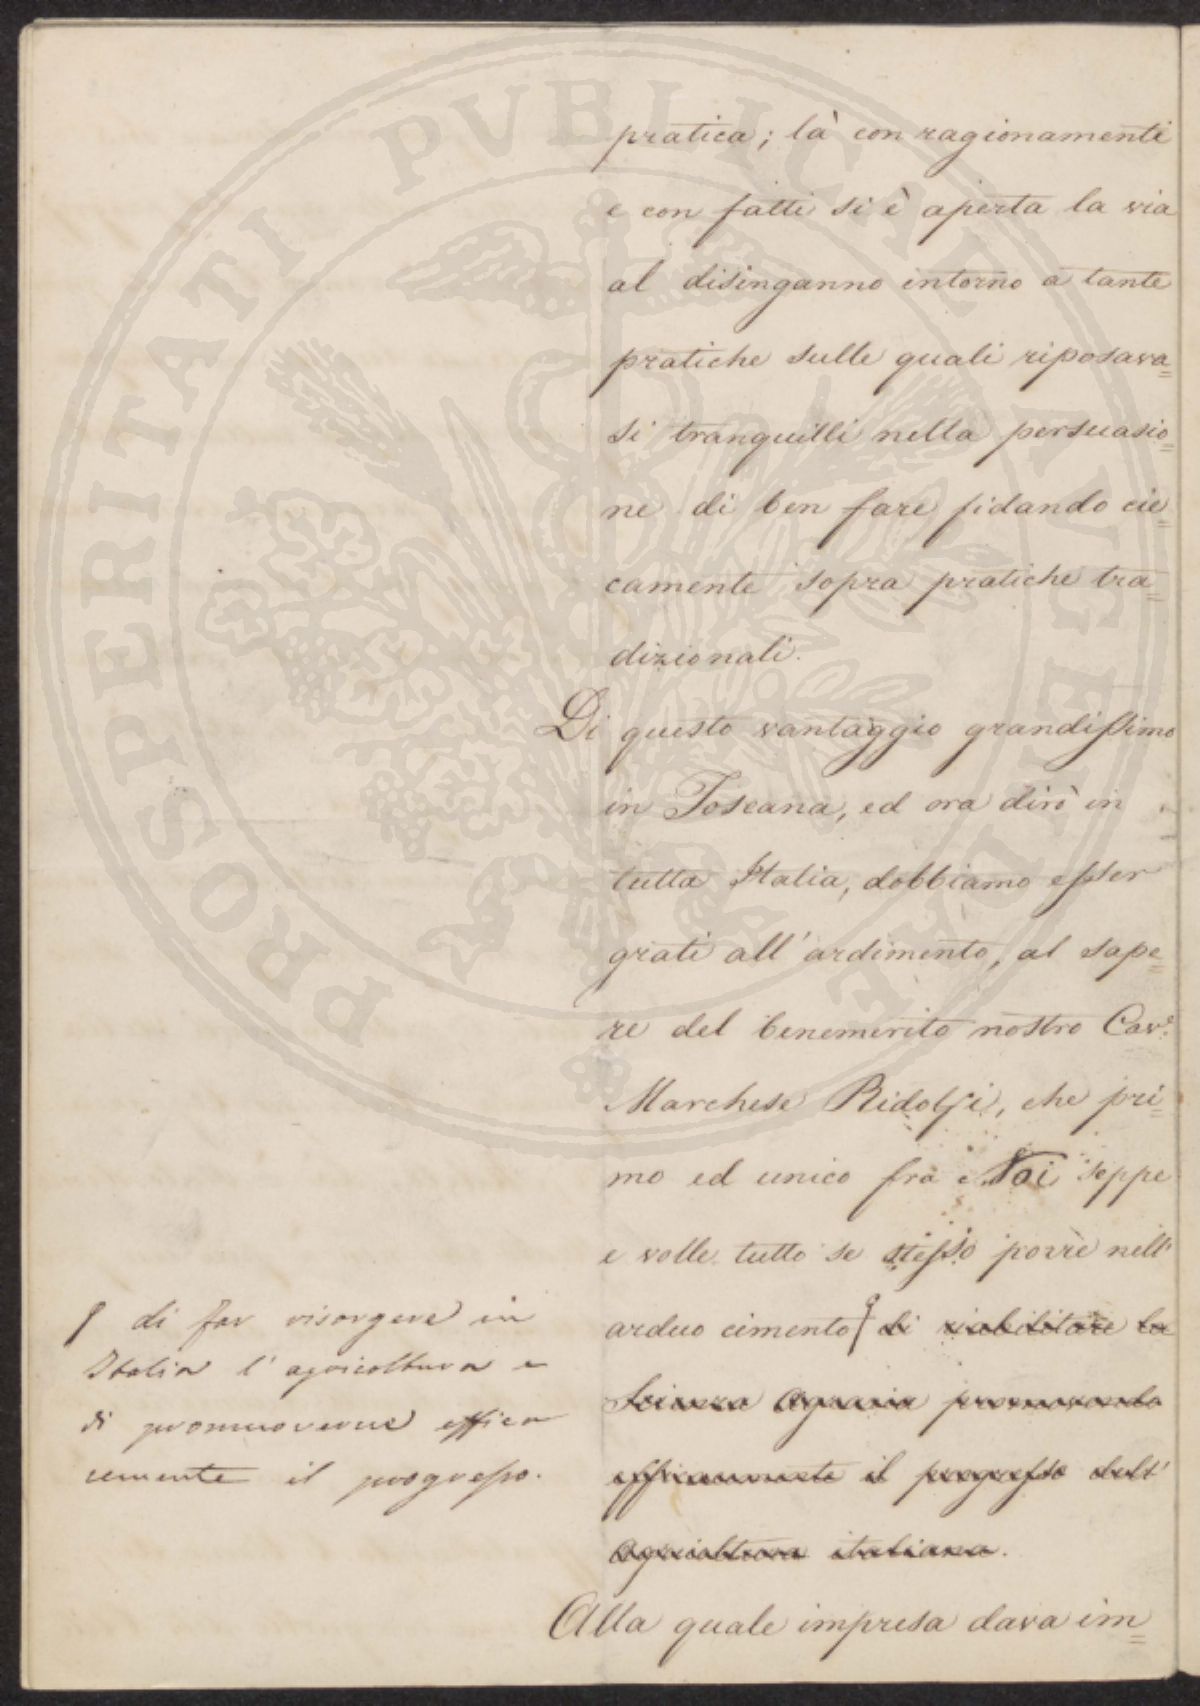 pratica; là con ragionamenti
e con fatti si è aperta la via
al disinganno intorno a tante
pratiche sulle quali riposava=
si tranquilli nella persuasio=
ne di ben fare fidando cie=
camente sopra pratiche tra=
dizionali.
Di questo vantaggio grandissimo
in Toscana, ed ora dirò in
tutta Italia, dobbiamo esser
grati all'ardimento, al sape=
re del benemerito nostro Cav.e
Marchese Ridolfi, che pri=
mo ed unico fra Noi seppe
e volle tutto se stesso porre nell'
arduo cimento di riabilitare la
Scienza Agraria promovendo
efficacemente il progresso dell'
Agricoltura italiana.
Alla quale impresa dava im=
di far risorgere in
Italia l'agricoltura e
di promuoverne effica
cemente il progresso.
PROSPERITATI PVBLICAE AVGENDAE